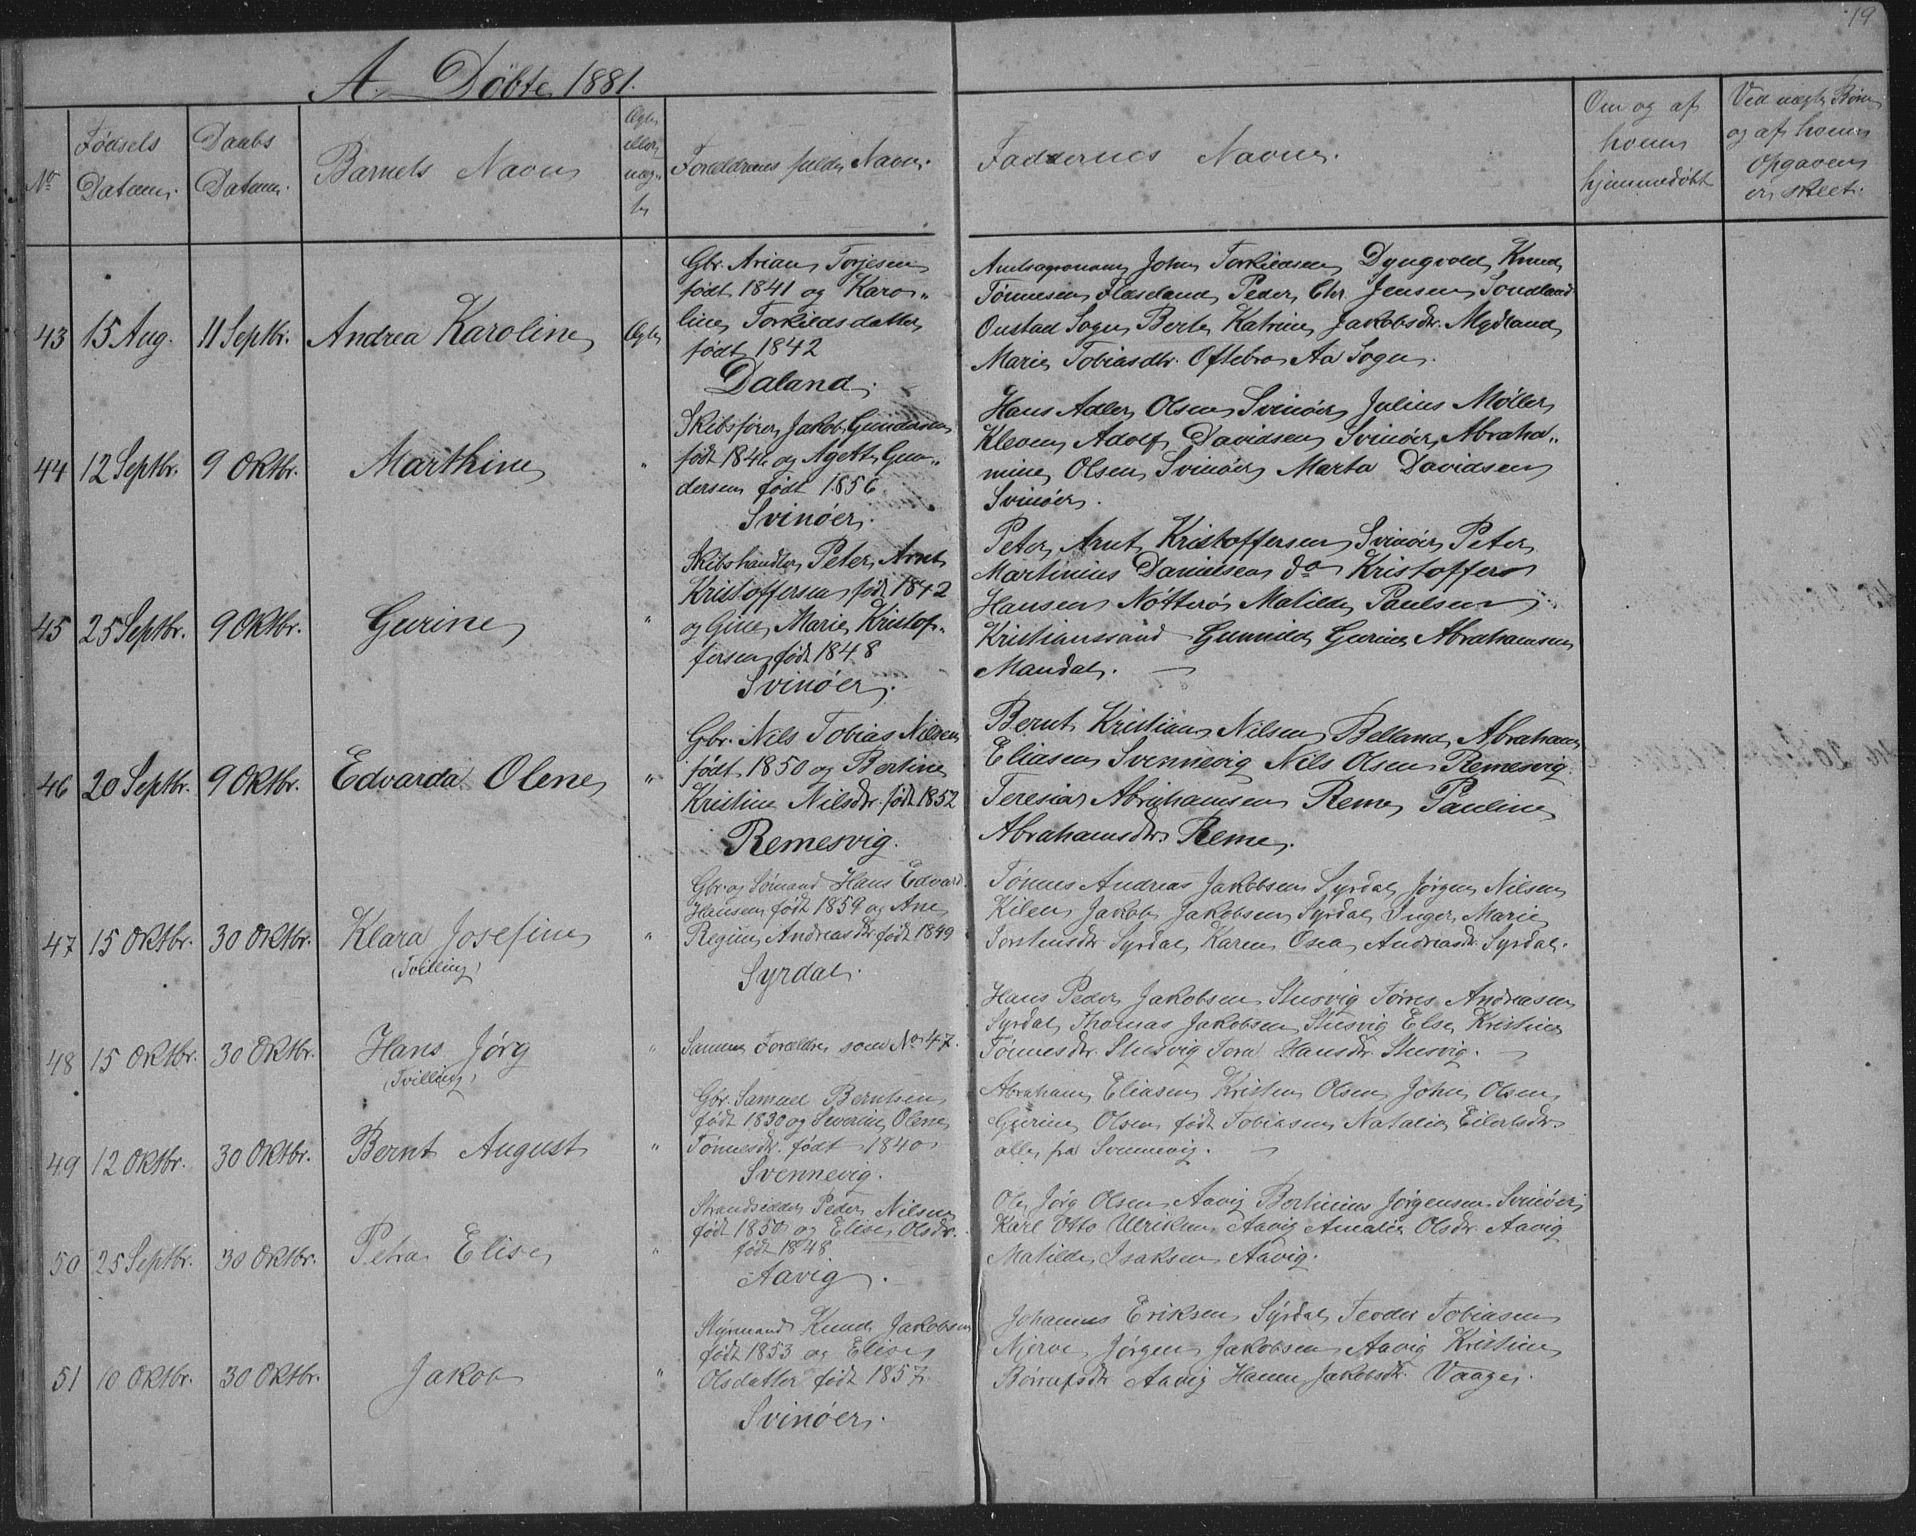 19
A. Döbte 1881.
No
Födsels Datum.
Daabs Datum.
Barnets Navn
Ægte eller uægte
Forældrenes fulde Navn.
Faddernes Navne.
Om og af hvem hjemmedöbt
Ved uægte Börn og af hvem Opgaven er skeet.
43 15 Aug. 11 Septbr. Andrea Karoline Ægte
Gbr. Arian Torjesen
födt 1841 og Karo„
line Torkildsdatter
födt 1842
Daland.
Amtsagronom John Torkildsen Dyngvold, Knud
Tönnesen Flaseland, Peder Chr. Jensen Sondland
Oustad Sogn Berte Katrine Jakobsdtr. Mydland
Marie Tobiasdtr. Oftebro Aa Sogn.
44 12 Septbr. 9 Oktbr. Marthine "
Skibsförer Jakob Gundersen
födt 1846 og Agette Gun„
dersen födt 1856
Svinöer.
Hans Adler Olsen Svinöer Julius Möller
Kleven Adolf Davidsen Svinöer, Abraha„
mine Olsen Svinöer Marta Davidsen
Svinöer.
45 25 Septbr. 9 Oktbr. Gurine "
Skibshandler Peter Arnt
Kristoffersen födt 1842
og Gine Marie Kristof„
fersen födt 1848
Svinöer.
Peter Arnt Kristoffersen Svinöer Peter
Martinius Danielsen do Kristoffer
Hansen Nötterö Matilde Paulsen
Kristianssand Gunnild Gurine Abrahamsen
Mandal.
46 20 Septbr. 9 Oktbr. Edvarda Olene "
Gbr. Nils Tobias Nilsen
födt 1850 og Bertine
Kristine Nilsdtr. födt 1852
Remesvig.
Bernt Kristian Nilsen Belland, Abraham
Eliasen Svennevig Nils Olsen Remesvig.
Teresia Abrahamsen Reme Pauline
Abrahamsdtr. Reme.
47 15 Oktbr. 30 Oktbr. Klara Josefine "
(Tvilling)
Gbr. og Sömand Hans Edvard
Hansen födt 1859 og Ane
Regine Andreasdtr födt 1849
Syrdal.
Tönnes Andreas Jakobsen Syrdal Jörgen Nilsen
Kilen Jakob Jakobsen Syrdal Inger Marie
Torstensdtr. Syrdal Karen Osea Andreasdtr. Syrdal.
48 15 Oktbr. 30 Oktbr. Hans Jörg "
(Tvilling)
Samme Forældre som No 47.
Hans Peder Jakobsen Stusvig Törres Andreasen
Syrdal Thomas Jakobsen Stusvig Else Kristine
Tönnesdtr. Stusvig Tora Hansdtr. Stusvig.
49 12 Oktbr. 30 Oktbr. Bernt August "
Gbr. Samuel Berntsen
födt 1830 og Severine Olene
Tönnesdtr. födt 1840
Svennevig.
Abraham Eliasen Kristen Olsen John Olsen
Gurine Olsen födt Tobiasen Natalia Eilertsdtr
alle fra Svennevig.
50 25 Septbr. 30 Oktbr. Petra Elise "
Strandsidder Peder Nilsen
födt 1850 og Elise Olsdtr.
födt 1848.
Aavig.
Ole Jörg Olsen Aavig Bertinius Jörgensen Svinöer
Karl Otto Ulriksen Aavig Amalie Olsdtr. Aavig
Matilde Isaksen Aavig.
51 10 Oktbr. 30 Oktbr. Jakob "
Styrmand Knud Jakobsen
födt 1853 og Elise
Olsdatter födt 1857
Svinöer.
Johannes Eriksen Syrdal Teodor Tobiasen
Njerve Jörgen Jakobsen Aavig Kristine
Aavig Hanne Jakobsdtr. Vaage.